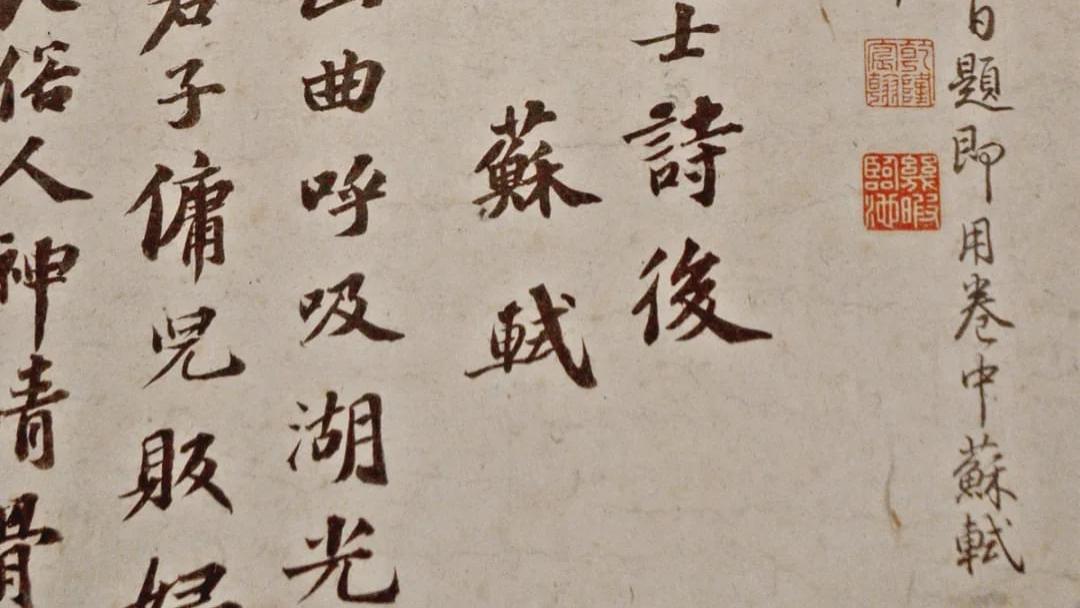 日題即用卷中蘇軾
乾隆宸翰
幾暇臨池
士詩後
蘇軾
山曲呼吸湖光
君子傭兒販婦
俗人神清骨